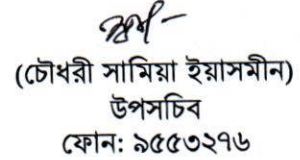 (চৌধুরী সামিয়া ইয়াসমীন)
উপসচিব
ফোন: ৯৫৫৩২৭৬